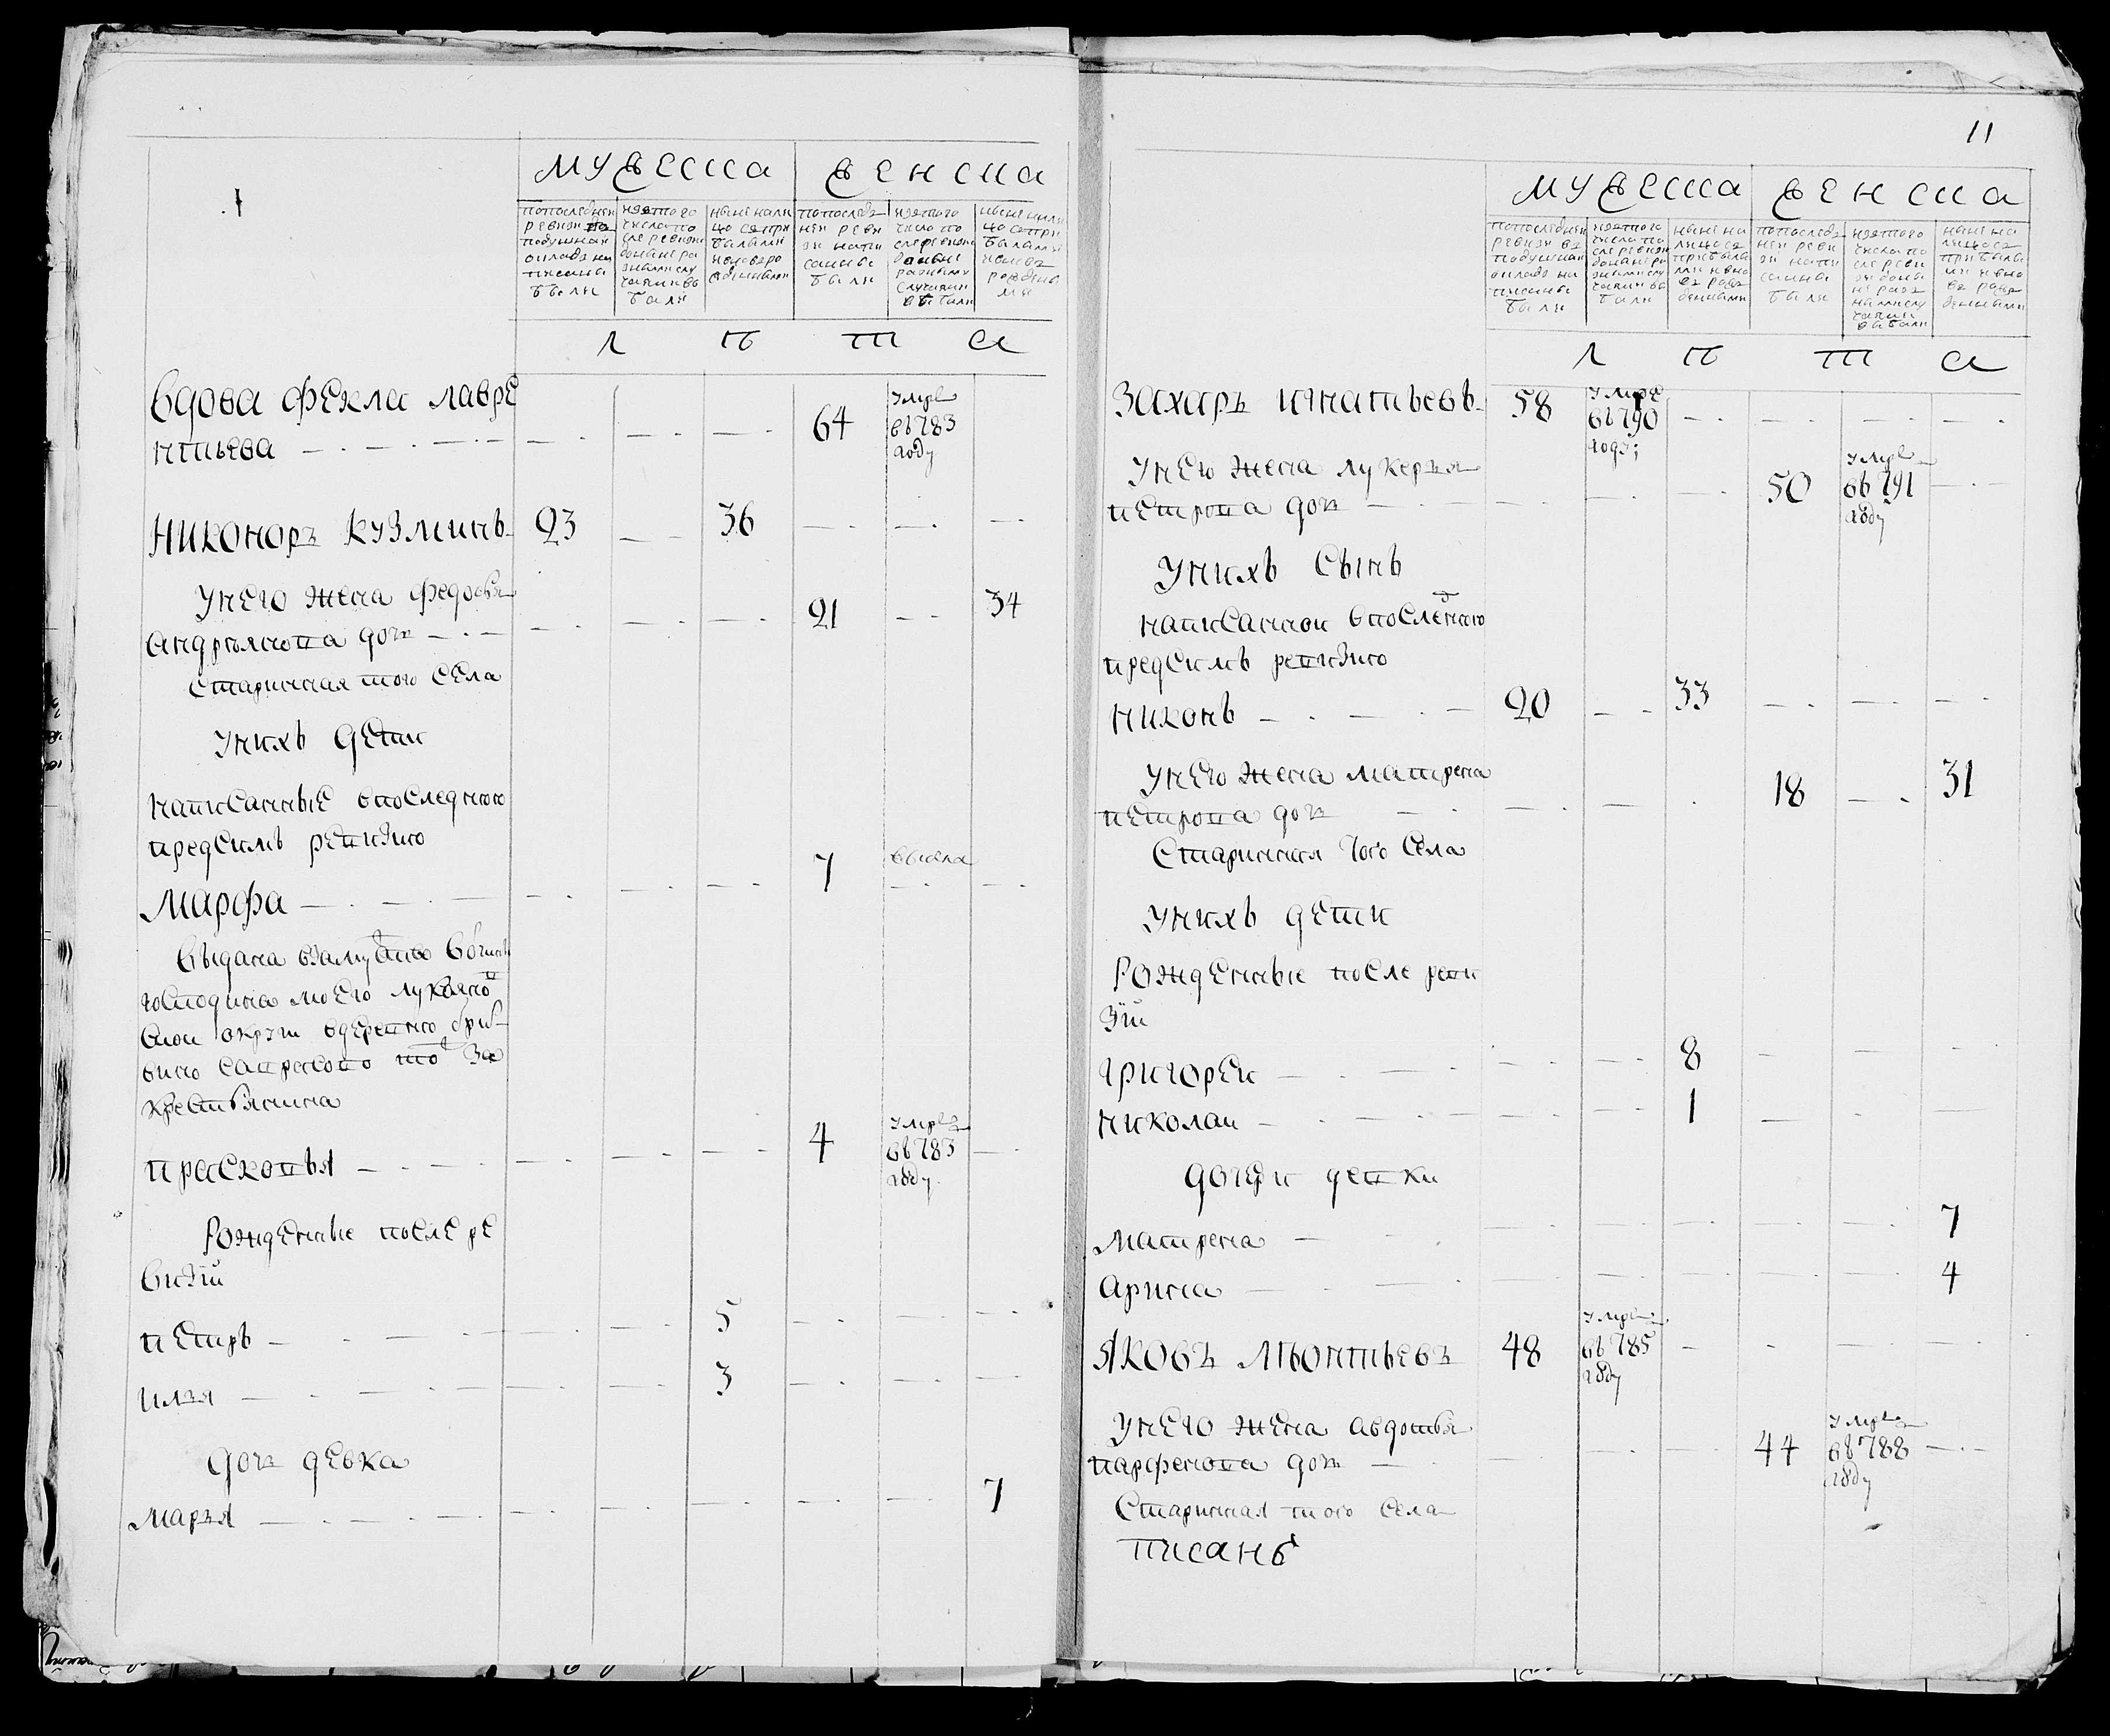 мужеска женска
попоследней ревизи в подушнай окладе написаны были
изетого числа после ревизи до ныне разными случаями выбыли
ныне налицо сприбылыми и новорожденными
попоследней ревизи написаны были
изетого числа после ревизи доныне разными случаями выбыли
ныне налицо сприбылыми и новорожденными
л ѣ т а
вдова Фекла лавре
нтьева 64 умре въ 783 году
Никоноръ кузминъ 23 36
унего жена федосья
андриянова доч 21 34
старинная того села
унихъ дети
написанные впоследнюю
предсимъ ревизию
Марфа 7 выдана
выдана взамужство
господина моего
крестьянина
прасковья 4 умре въ 783 году
Рожденные после ре
визiи
петръ 5
илья 3
доч девка
марья 7
11
мужеска женска
попоследней ревизи в подушнай окладе написаны были
изетого числа после ревизи доныне разными случаями выбыли
ныне налицо сприбылыми и вновь рожденными
попоследней ревизи написаны были
изетого числа после ревизи доныне разными случаями выбыли
ныне налицо сприбылыми и вновь рожденными
л ѣ т а
Захаръ игнатьевъ 58 умре въ 790 году
унего жена лукерья
петрова доч 50 умре въ 791 году
унихъ сынъ
написанной впоследнюю
предсимъ ревизию
никонъ 20 33
унего жена матрена
петрова доч 18 31
старинная того села
унихъ дети
Рожденные после реви
зiи
григорей 8
николай 1
дочери девки
матрена 7
арина 4
Яковъ леонтьевъ 48 умре въ 785 году
унего жена авдотья
парфенова доч 44 умре въ 788 году
старинная того села
писанъ